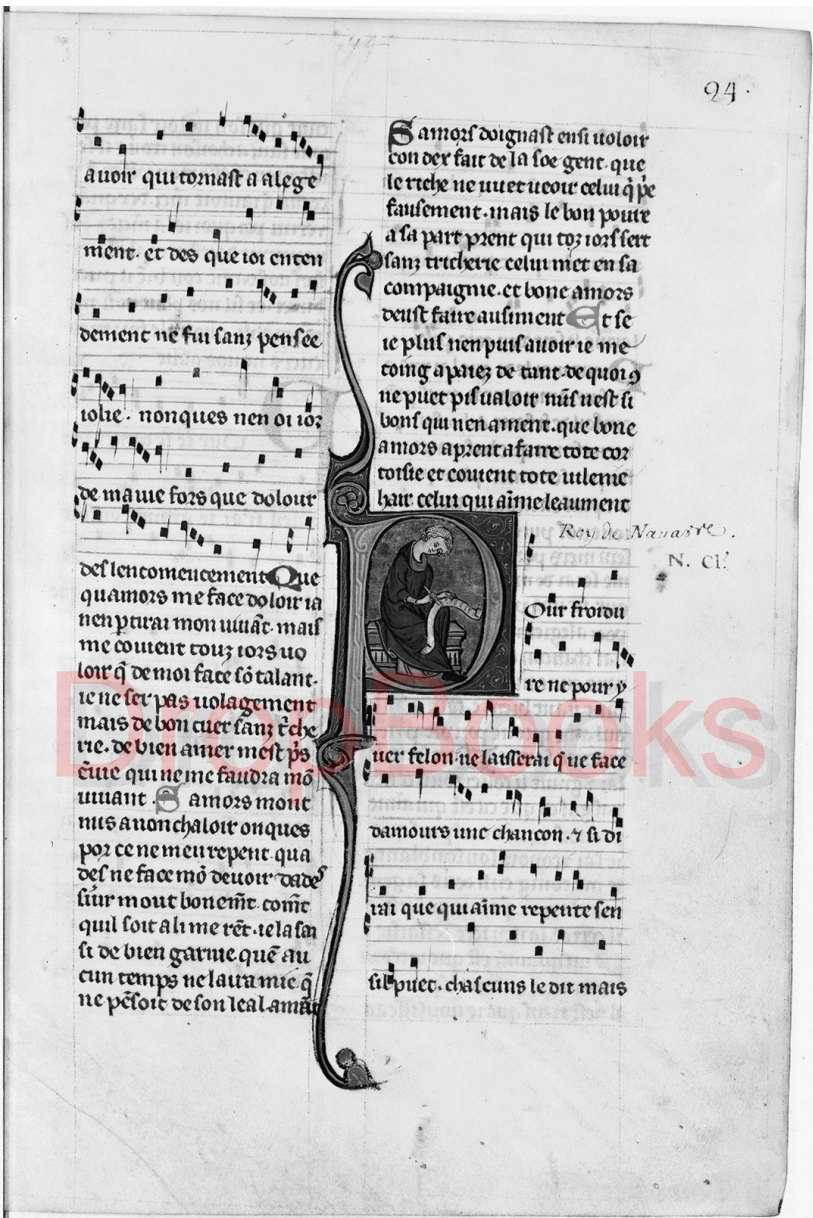 24.
avoir qui tornast a alege
ment. et des que ioi enten
dement ne fui sanz pensee
iolie. nonques nen oi ior
de ma uie fors que dolour
des lencomencement Que
quamors me face doloir ia
nen ꝑtirai mon uiuãt. mais
me couient touz iors uo
loir q̃ de moi face sõ talant.
ie ne ser pas uolagement
mais de bon cuer sanz t̃che
rie. de bien amer mest p̃s
ẽuie qui ne me faudra mõ
uiuant. S amors mont
mis a nonchaloir onques
por ce ne meu repent. qua
des ne face mõ deuoir dades
siur mout bonem̃t. com̃t
quil soit a li me rẽt. ie la sai
si de bien garnie. quẽ au
cun temps ne laura mie q̃
ne pẽsoit de son leal amãt
S amors doignast ensi uoloir
con der fait de la soe gent. que
le riche ne uuet ueoir celui q̃ p̃e
fausement. mais le bon poure
a sa part prent qui toz iors sert
sanz tricherie celui met en sa
compaignie. et bone amors
deust faire ausiment Et se
ie plus nen puis auoir ie me
toing a paiez de tant. de quoi ꝯ
ne puet pis ualoir nũs nest si
bons qui nen ament. que bone
amors aprent a faire tote cor
toisie et couient tote uileme
hair celui qui aĩme leaument
Roy de Nauarre.
N. Cl!
Our froidu
re ne pour y
uer felon. ne laisserai q̃ ue face
damours une chancon. ⁊ si di
rai que qui aĩme repente sen
sil puet. chascuns le dit mais
DropBooks